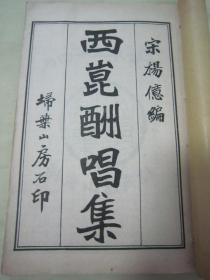 宋楊億編
西崑酬唱集
埽葉山房石印